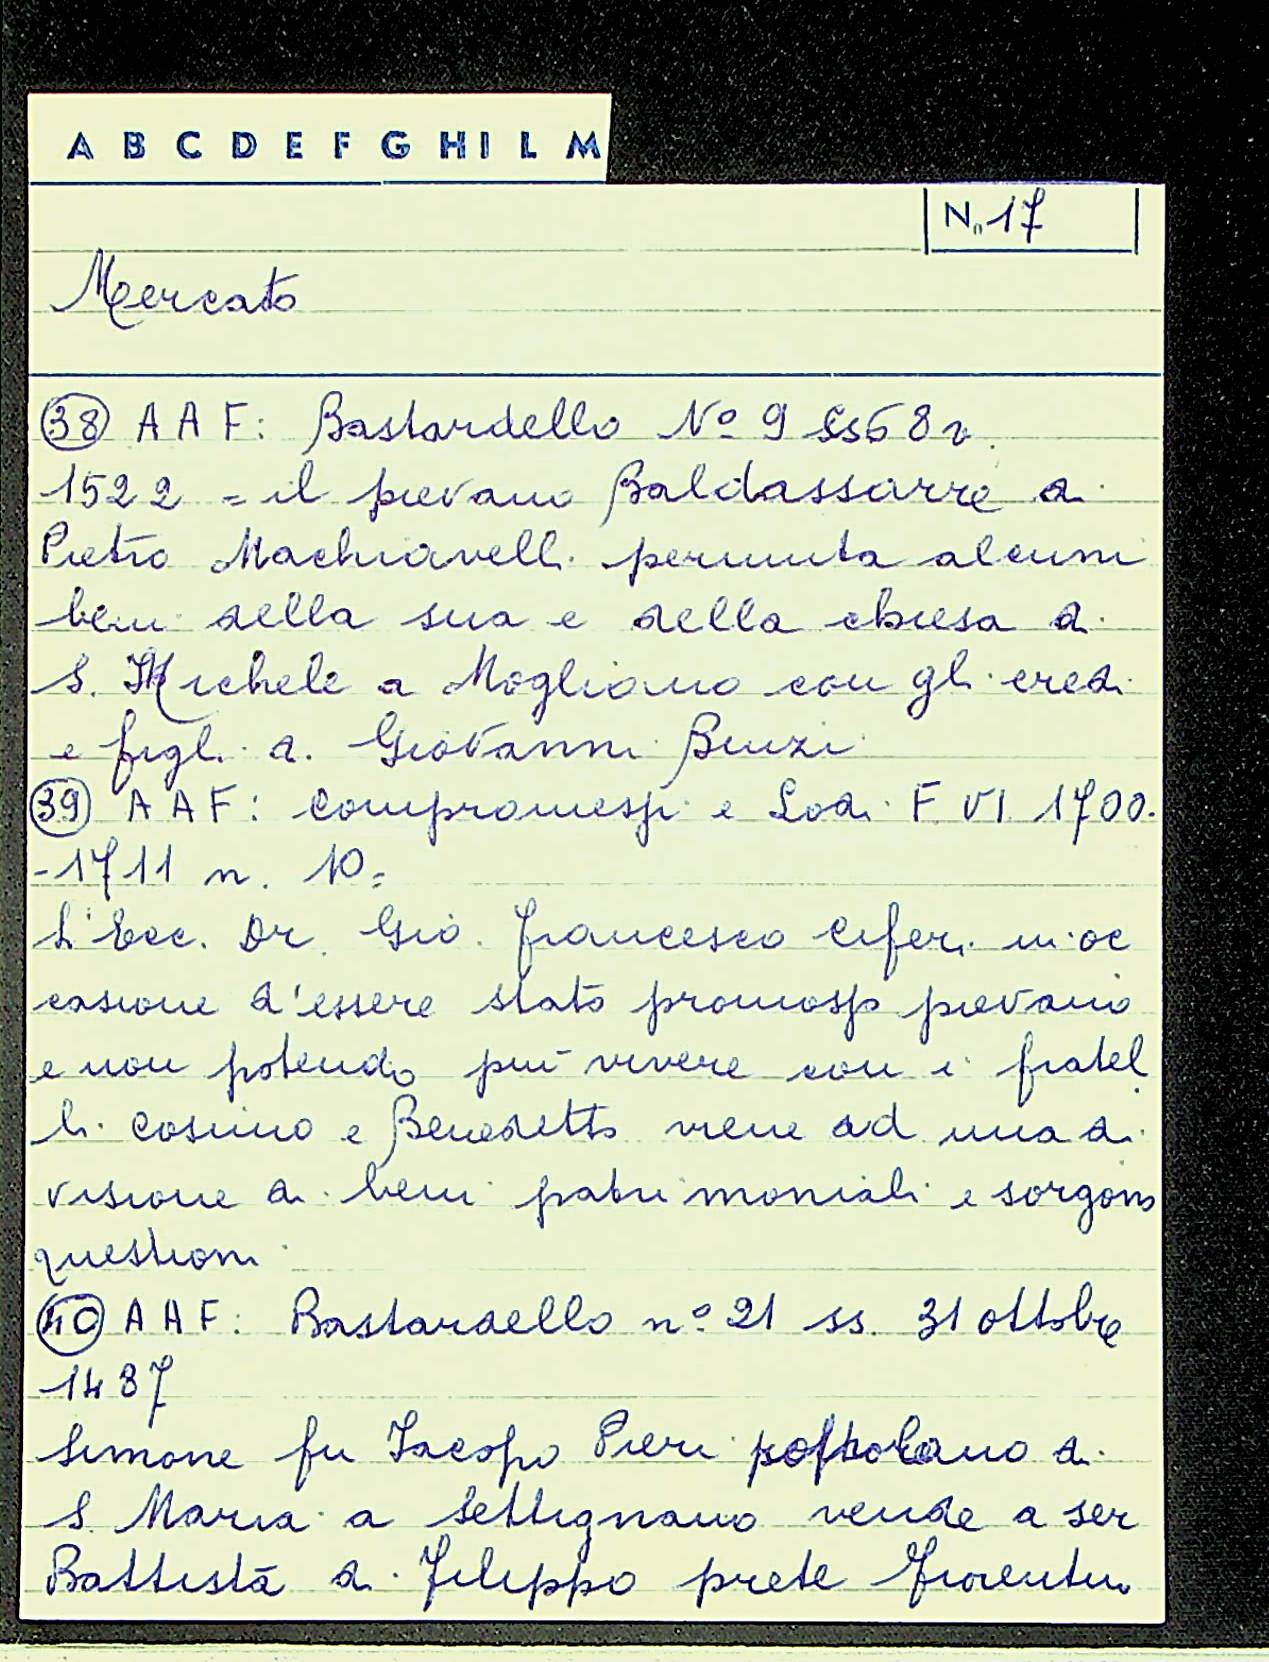 A B C D E F G H I L M
N. 17
Mercato
38 A A F: Bastardello Nº 9 ss 68 v.
1522 = il pievano Baldassarre di
Pietro Machiavelli permuta alcuni
beni della sua e della chiesa di
S. Michele a Mogliano con gli eredi
e figli di Giovanni Binzi
39 A A F: Compromessi e Lodi F VI 1700-
-1711 n. 10=
L'Ecc. Dr. Gio. Francesco Ciferi in oc
casione d'essere stato promosso pievano
e non potendo più vivere con i fratel
li Cosimo e Benedetto viene ad una di
visione di beni patrimoniali e sorgono
questioni
40 A A F: Bastardello nº 21 ss. 31 ottobre
1487
Simone fu Iacopo Pieri popolano di
S. Maria a Settignano vende a ser
Battista di Filippo prete fiorentino